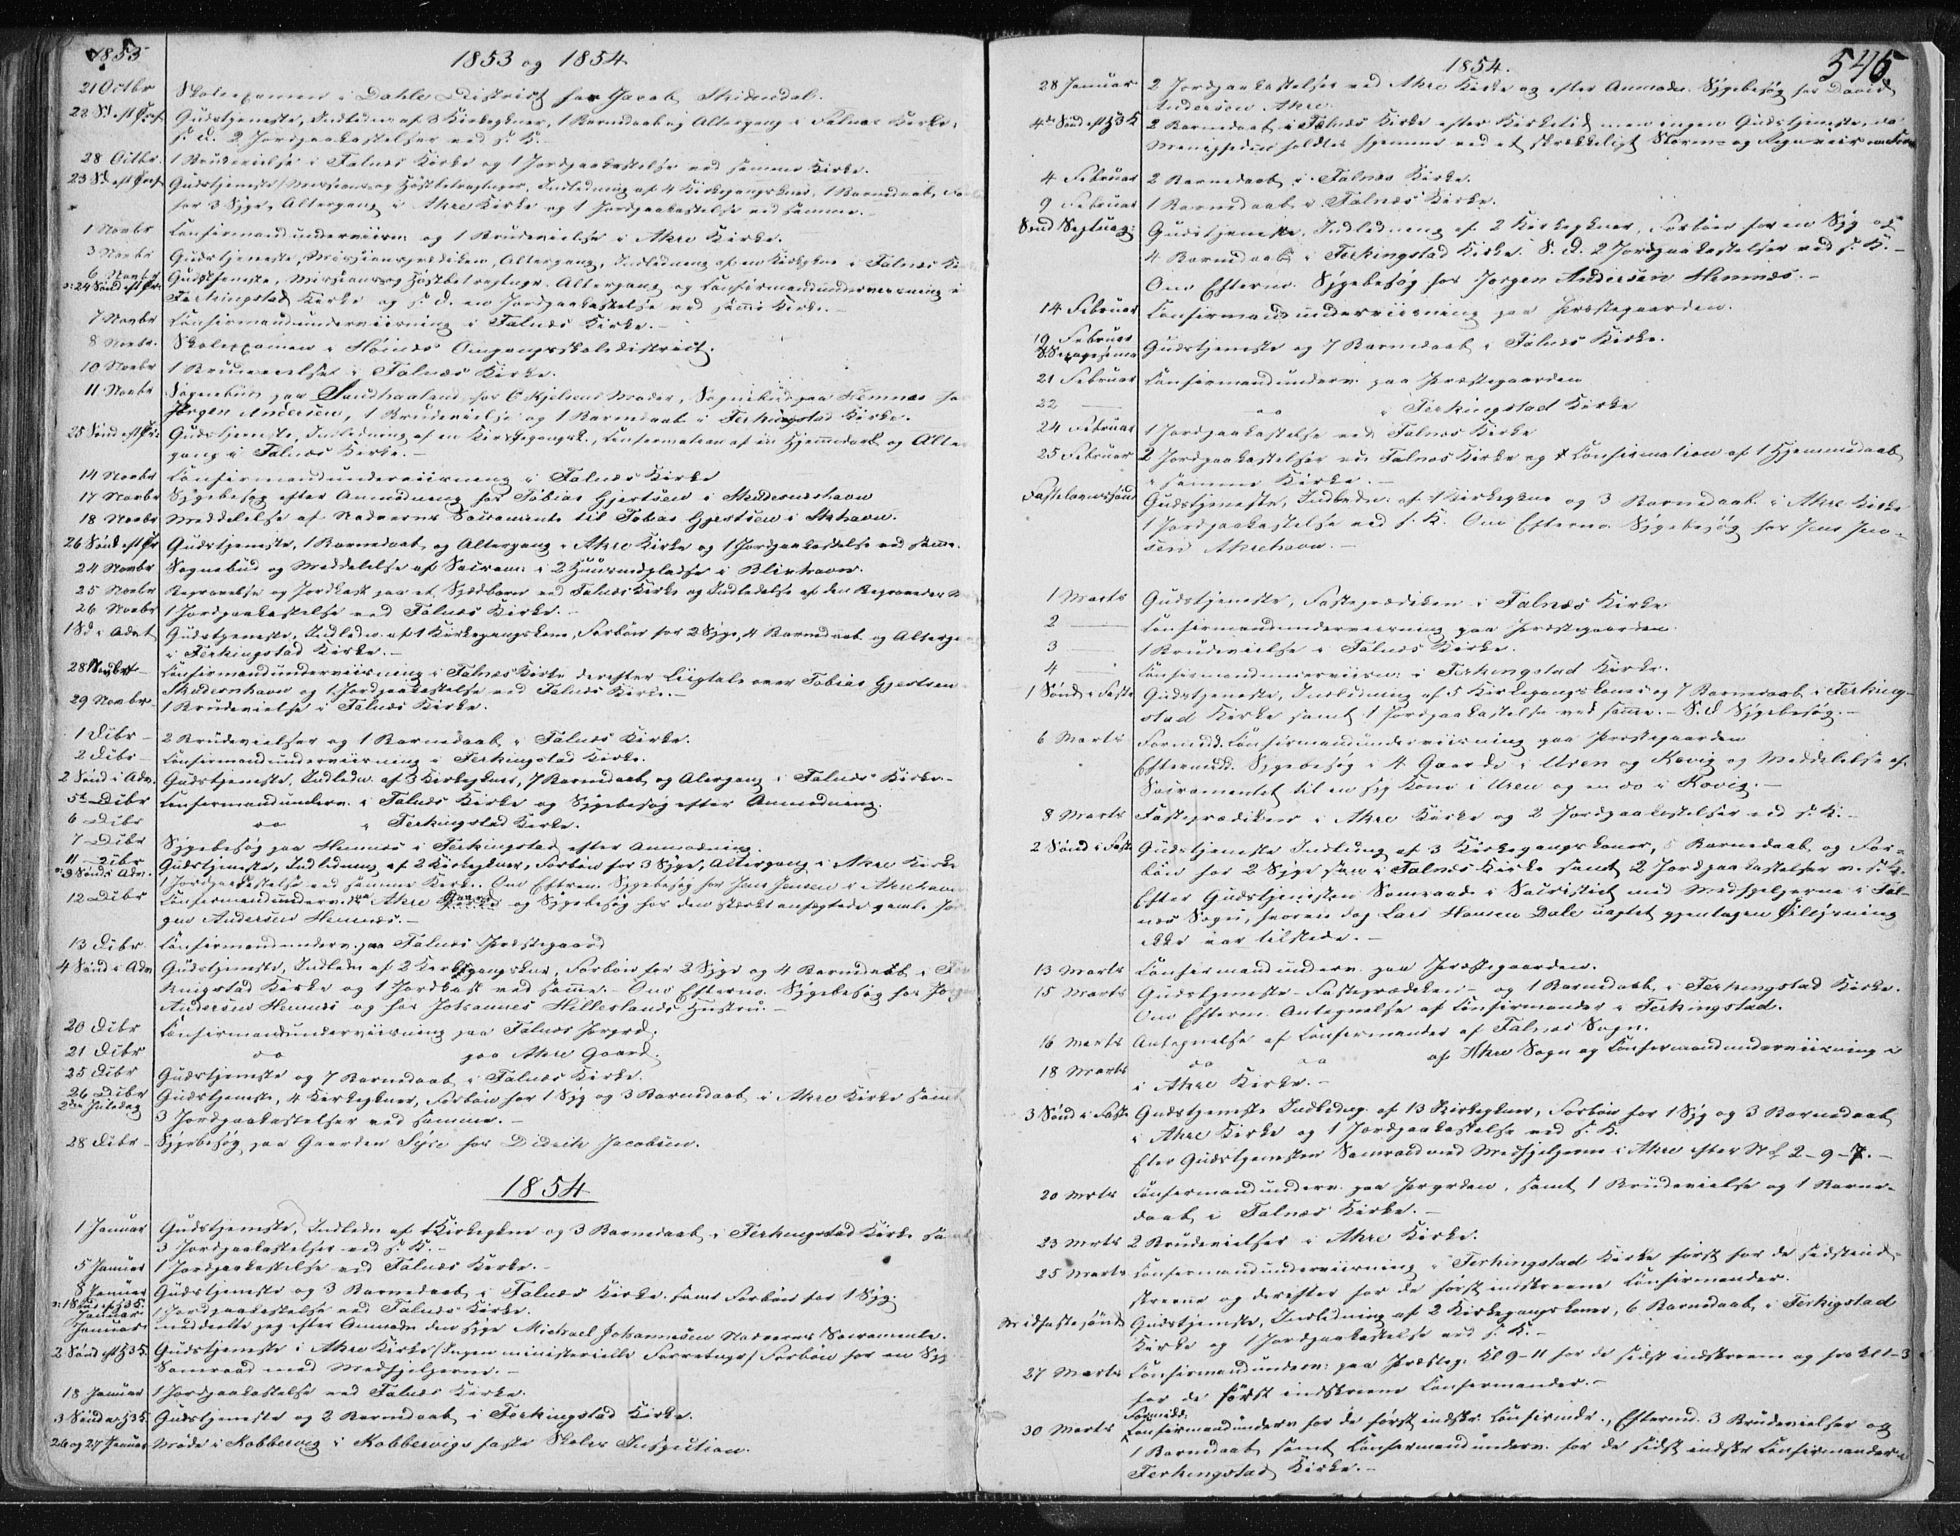 1853
1853 og 1854
21 Octbr Skoleexamen i Dahle District hos Jacob Skidendal.
22 Sd eft Tref. Gudstjeneste, Indledn af 3 Kirkegkner, 1 Barnedaab og Altergang i Falnæs Kirke,
s. d. 2 Jordpaakastelser ved s. K.
28 Octbr. 1 Brudevielse i Falnæs Kirke og 1 Jordpaakastelse ved samme Kirke.
23 Sd eft Tref Gudstjeneste, Missions og Høstbetragtning, Indledning af 4 Kirkegangskner, 1 Barnedaab,
for 3 Syge, Altergang i Akre Kirke og 1 Jordpaakastelse ved samme.
1 Novbr Confirmandunderviisn. og 1 Brudevielse i Akre Kirke.
3 Novbr Gudstjeneste, Missionsprædiken, Altergang, Indledning af en Kirkegkne i Falnæs
6 Novbr Gudstjeneste, Missions og Høstbetragtngr. Altergang og Confirmandunderviisning i
24 Sønd eft Tr. Ferkingstad Kirke og s. d. en Jordpaakastelse ved samme Kirke.
7 Novbr Confirmandunderviisning i Falnæs Kirke.
8 Novbr. Skoleexamen i Høines Omgangsskoledistrict.
10 Novbr 1 Brudevielse i Falnæs Kirke.
11 Novbr Sognebud paa Sandhaaland, for O Kjelsens Moder, Sognebud paa Hemnæs for
Jørgen Andersen, 1 Brudevielse og 1 Barnedaab i Ferkingstad Kirke.
25 Sønd eft Tr. Gudstjeneste, Indledning af en Kirkegangsk., Confirmation af en Hjemmdøbt og Alter
gang i Falnæs Kirke.
14 Novbr Confirmandunderviisning i Falnæs Kirke
17 Novbr Sygebesøg efter Anmodning hos Tobias Gjertsen i Skudesneshavn
18 Novbr Meddelelse af Nadverens Sacramente til Tobias Gjertsen i Skhavn.
26 Sønd eft Tr Gudstjeneste, 1 Barnedaab og Altergang i Akre Kirke og 1 Jordpaakastelse ved samme.
24 Novbr Sognebud og Meddelelse af Sacram. i 2 Huusmdpladse i Blikhavn.
25 Novbr Begravelse og Jordkast paa et Spædbarn ved Falnæs Kirke og Indledelse af den
26 Novbr 1 Jordpaakastelse ved Falnæs Kirke.
1 Sd i Advt Gudstjeneste, Indledn. af 1 Kirkegangskone, Forbøn for 2 Syge, 4 Barnedaab og Alterga
i Ferkingstad Kirke.
28 Novbr Confirmandunderviisning i Falnæs Kirke derefter Liigtale over Tobias Gjertsen
Skudesnhavn og 1 Jordpaakastelse ved Falnæs Kirke.
29 Novbr 1 Brudevielse i Falnæs Kirke.
1 Dcbr 2 Brudevielser og 1 Barnedaab i Falnæs Kirke.
2 Dcbr Confirmandunderviisning i Ferkingstad Kirke.
2 Sønd i Adv. Gudstjeneste, Indledn. af 3 Kirkegkner, 7 Barnedaab og Altergang i Falnæs Kirke.
5te Dcbr Confirmandunderv. i Falnæs Kirke og Sygebesøg efter Anmodning.
6 Dcbr do i Ferkingstad Kirke.
7 Dcbr Sygebesøg paa Hemnæs i Ferkingstad efter Anmodning.
11 Dcbr Gudstjeneste, Indledning af 2 Kirkegkner, Forbøn for 3 Syge, Altergang i Akre Kirke
3 Sønd i Adv. 1 Jordpaakastelse ved samme Kirke. Om Eftrm. Sygebesøg hos Jens Jensen i Akrehavn
12 Dcbr Confirmandunderv. paa Akre Gaard og Sygebesøg hos den stærkt anfægtede gamle Jør
gen Andersen Hemnæs.
13 Dcbr Confirmandunderv. paa Falnæs Præstegaard
4 Sønd i Adv Gudstjeneste, Indledn af 2 Kirkegangskner, Forbøn for 2 Syge og 4 Barnedaab i Fer
kingstad Kirke og 1 Jordkast ved samme. Om Efterm. Sygebesøg hos Jørgen
Andersen Hemnæs og hos Johannes Hillestands Hustru.
20 Dcbr Confirmandunderviisning paa Falnæs Prgrd.
21 Dcbr do paa Akre Gaard.
25 Dcbr Gudstjeneste og 7 Barnedaab i Falnæs Kirke.
26 Dcbr Gudstjeneste, 4 Kirkegkner, Forbøn for 1 Syg og 3 Barnedaab i Akre Kirke samt
2den Juledag 3 Jordpaakastelser ved samme.
28 Dcbr Sygebesøg paa Gaarden Syre hos Didrik Jacobsen.
1854
1 Januar Gudstjeneste, Indledn af 1 Kirkegkne og 3 Barnedaab i Ferkingstad Kirke samt
3 Jordpaakastelser ved s. K.
5 Januar 1 Jordpaakastelse ved Falnæs Kirke.
8 Januar Gudstjeneste og 3 Barnedaab i Falnæs Kirke. samt Forbøn for 1 Syg.
1 Jordpaakastelse ved Falnæs Kirke.
Januar meddeelte jeg efter Anmodn den syge Michael Johannesen Nadverens Sacramente.
2 Sønd eft H3K. Gudstjeneste i Akre Kirke (Ingen ministerielle Forretngr) Forbøn for en Syg
Samraad med Medhjelperne.
18 Januar 1 Jordpaakastelse ved Falnæs Kirke.
3 Sønd eft H3K. Gudstjeneste og 2 Barnedaab i Ferkingstad Kirke.
26 og 27 Januar Møde i Kobbervig i Kobbervigs faste Skoles Inspection.
1854.
545
28 Januar 2 Jordpaakastelser ved Akre Kirke og efter Anmodn. Sygebesøg hos David
Andersen Akre.
4de Sønd eft H3K 2 Barnedaab i Falnæs Kirke efter Kirketid men ingen Gudstjeneste, da
Menigheden holdtes hjemme ved et skrækkeligt Storm- og Regnveir
4 Februar 2 Barnedaab i Falnæs Kirke.
9 Februar 1 Barnedaab i Falnæs Kirke.
Sønd Septuag: Gudstjeneste, Indledning af 2 Kirkegkner, Forbøn for en Syg og
4 Barnedaab i Ferkingstad Kirke. S. d. 2 Jordpaakastelser ved s. K.
Om Efterm. Sygebesøg hos Jørgen Andersen Hemnæs.
14 Februar Confirmandunderviisning paa Præstegaarden.
19 Februar Gudstjeneste og 7 Barnedaab i Falnæs Kirke.
S. Sexagesima
21 Februar Confirmandunderv. paa Præstegaarden
22 — do i Ferkingstad Kirke
24 Februar 1 Jordpaakastelse ved Falnæs Kirke
25 Februar 2 Jordpaakastelser ved Falnæs Kirke og 1 Confirmation af 1 Hjemmedaab
i samme Kirke.
Fastelavnssønd Gudstjeneste, Indledn: af 1 Kirkegkne og 3 Barnedaab i Akre Kirke
1 Jordpaakastelse ved s. K. Om Efterm. Sygebesøg hos Jens Jen-
sen Akrehavn.
1 Marts Gudstjeneste, Fasteprædiken i Falnæs Kirke
2 — Confirmandunderviisning paa Præstegaarden.
3 — 1 Brudevielse i Falnæs Kirke.
4 — Confirmandunderviisn: i Ferkingstad Kirke.
1 Sønd i Faste Gudstjeneste, Indledning af 5 Kirkegangskoner og 7 Barnedaab i Ferking-
stad Kirke samt 1 Jordpaakastelse ved samme. S. d Sygebesøg.
6 Marts Formidd. Confirmandunderviisning paa Præstegaarden
Eftermidd. Sygebesøg i 4 Gaarde i Uren og Hovig og Meddelelse af
Sacramentet til en syg Kone i Uren og en do i Hovig.
8 Marts Fasteprædiken i Akre Kirke og 2 Jordpaakastelser ved s. K.
2 Sønd i Faste Gudstjeneste Indledng af 3 Kirkegangskoner, Barnedaab og For-
bøn for 2 Syge saa i Falnæs Kirke samt 2 Jordpaakastelser v. s. K.
Efter Gudstjenesten Samraad i Sacristiet med Medhjelperne i Fal-
næs Sogn, hvorved dog Lars Hansen Dale uagtet gjentagen Tilsigning
ikke var tilstede.
13 Marts Confirmandunderv. paa Præstegaarden.
15 Marts Gudstjeneste - Fasteprædiken - og 1 Barnedaab i Ferkingstad Kirke.
Om Efterm. Antegnelse af Confirmander i Ferkingstad.
16 Marts Antegnelse af Confirmander af Falnæs Sogn.
18 Marts do do af Akre Sogn og Confirmandunderviisning i
i Akre Kirke.
3 Sønd i Faste Gudstjeneste Indledng. af 13 Kirkegkner, Forbøn for 1 Syg og 3 Barnedaab
i Akre Kirke og 1 Jordpaakastelse ved s. K.
Efter Gudstjenesten Samraad med Medhjelperne i Akre efter NL 2-9-7.
20 Mrts Confirmandunderv. paa Prgrden, samt 1 Brudevielse og 1 Barne-
daab i Falnæs Kirke.
23 Mrts 2 Brudevielser i Akre Kirke.
25 Marts Confirmandunderviisning i Ferkingstad Kirke først for de sidst ind-
skrevne og derefter for de først indskrevne Confirmander.
Midfastesønd Gudstjeneste, Indledning af 2 Kirkegangskoner, 6 Barnedaab i Ferkigstad
Kirke og 1 Jordpaakastelse ved s. K.
27 Marts Confirmandunderv: paa Præsteg: Kl 9-11 for de sidst indskrevne og fra Kl 1-3
for de først indskrevne Confirmander.
Formidd:
30 Marts Confirmandunderv for de først indskr. Confirmdr., Eftermd. 3 Brudevielser og
1 Barnedaab samt Confirmandunderv. for de sidst indskr Confirmander i
Ferkingstad Kirke.